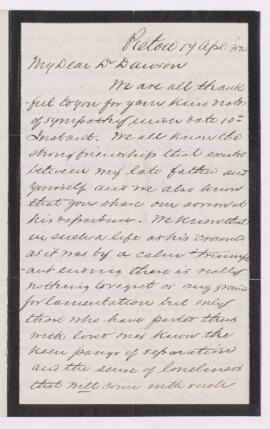 Pictou 17 Apl
My Dear Dr Dawson
We are all thank-
ful to you for your kind note
of sympathy under date 10th
Instant. We all know the
strong friendship that existed
between my late father and
yourself and we also know
that you share our sorrow at
his departure. We know that
in such a life as his crowned
as it was by a calm & triumph-
ant ending there is really
nothing to regret or any ground
for lamentation but only
those who have parted thus
with loved ones know the
keen pangs of separation
and the sense of loneliness
that will come with such